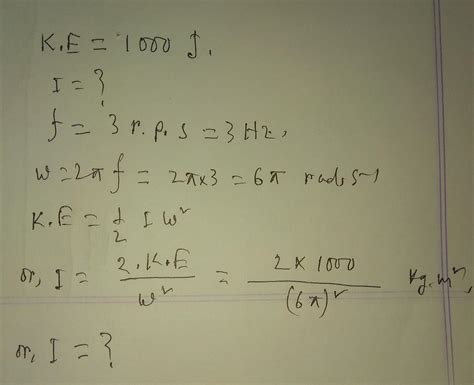 K.E = 1000 J.
I = ?
f = 3 r.p.s = 3 Hz,
w = 2π f = 2π×3 = 6π rad s⁻¹
K.E = 1/2 I w²
or, I = 2.K.E/w² = 2×1000/(6π)² Kg.m²,
or, I = ?